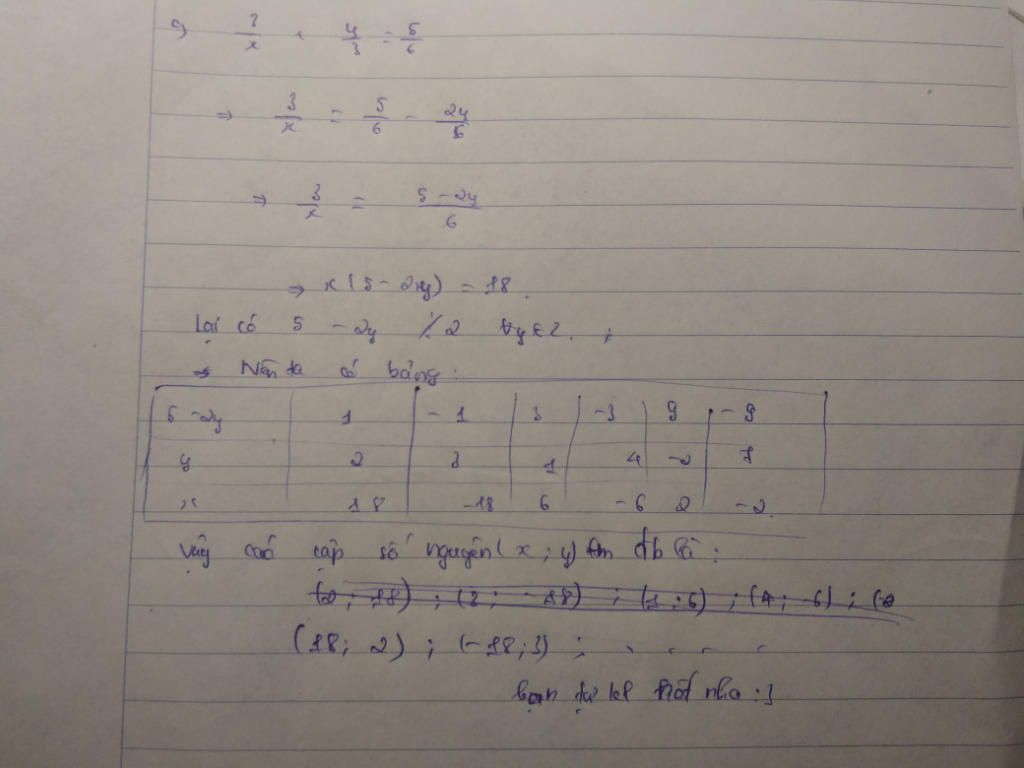 c) 3/x + y/3 = 5/6
⇒ 3/x = 5/6 - 2y/6
⇒ 3/x = (5 - 2y)/6
⇒ x(5 - 2y) = 18.
Lại có 5 - 2y ⋮̸ 2 ∀y∈Z. ;
⇒ Nên ta có bảng:
5 - 2y 1 -1 3 -3 9 -9
y 2 3 1 4 -2 7
x 18 -18 6 -6 2 -2
Vậy các cặp số nguyên (x ; y) tm đb là :
(2 ; 18) ; (3 ; -18) ; (1 ; 6) ; (4 ; -6) ; (-2
(18 ; 2) ; (-18 ; 3) ; . . . .
bạn tự kl nốt nha :]